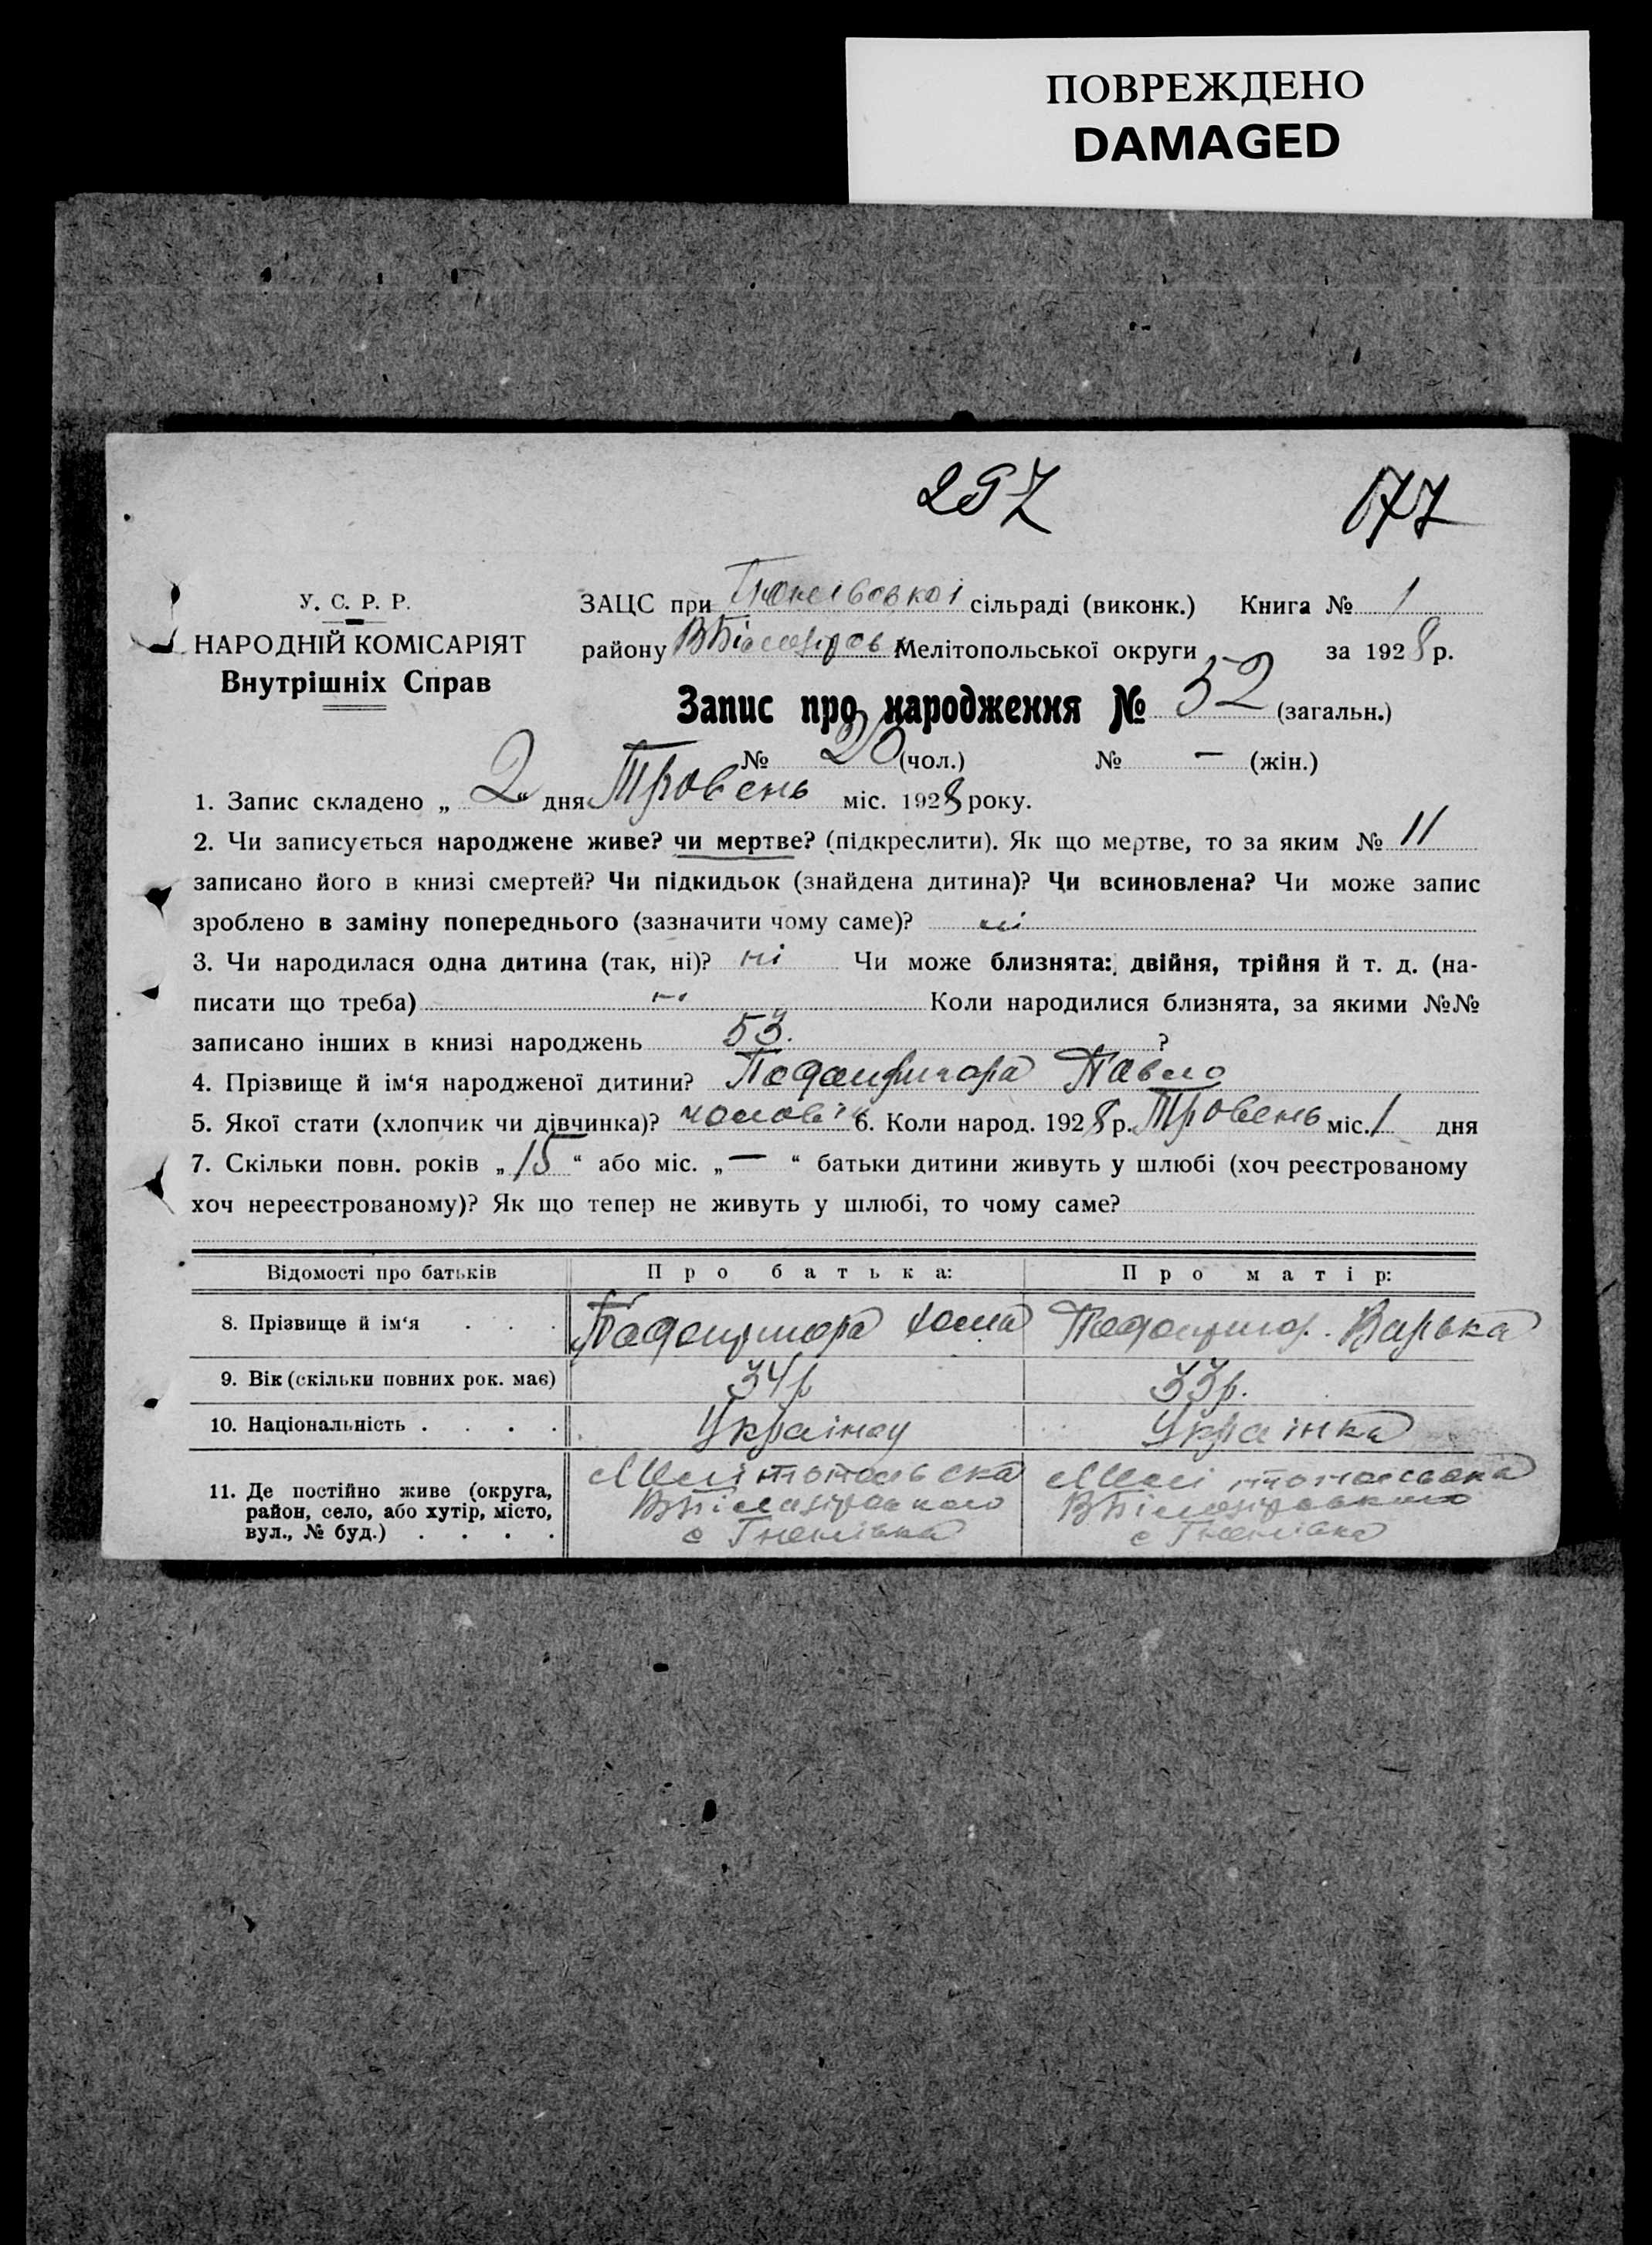 ПОВРЕЖДЕНО
DAMAGED
297
177
У. С. Р. Р.
НАРОДНІЙ КОМІСАРІЯТ
Внутрішніх Справ
ЗАЦС при сільраді (виконк.) Книга № 1
району Мелітопольської округи за 1928 р.
Запис про народження № 52 (загальн.)
№ 20 (чол.) № — (жін.)
1. Запис складено „ 2 “ дня Тровень міс. 1928 року.
2. Чи записується народжене живе? чи мертве? (підкреслити). Як що мертве, то за яким № 11
записано його в книзі смертей? Чи підкидьок (знайдена дитина)? Чи всиновлена? Чи може запис
зроблено в заміну попереднього (зазначити чому саме)? ні
3. Чи народилася одна дитина (так, ні)? ні Чи може близнята: двійня, трійня й т. д. (на-
писати що треба) Коли народилися близнята, за якими №№
записано інших в книзі народжень 53. ?
4. Прізвище й ім‘я народженої дитини? Павло
5. Якої стати (хлопчик чи дівчинка)? чоловік 6. Коли народ. 1928 р. Тровень міс. 1 дня
7. Скільки повн. років „ 15 “ або міс. „ — “ батьки дитини живуть у шлюбі (хоч реєстрованому
хоч нереєстрованому)? Як що тепер не живуть у шлюбі, то чому саме?
Відомості про батьків Про батька: Про матір:
8. Прізвище й ім‘я . . . Хома Варька
9. Вік (скільки повних рок. має) 34р 33р.
10. Національність . . . . Українец Українка
11. Де постійно живе (округа,
район, село, або хутір, місто,
вул., № буд.) . . . .
Мелітопольска
с Ганнівка
Мелітопольська
с Ганнівка